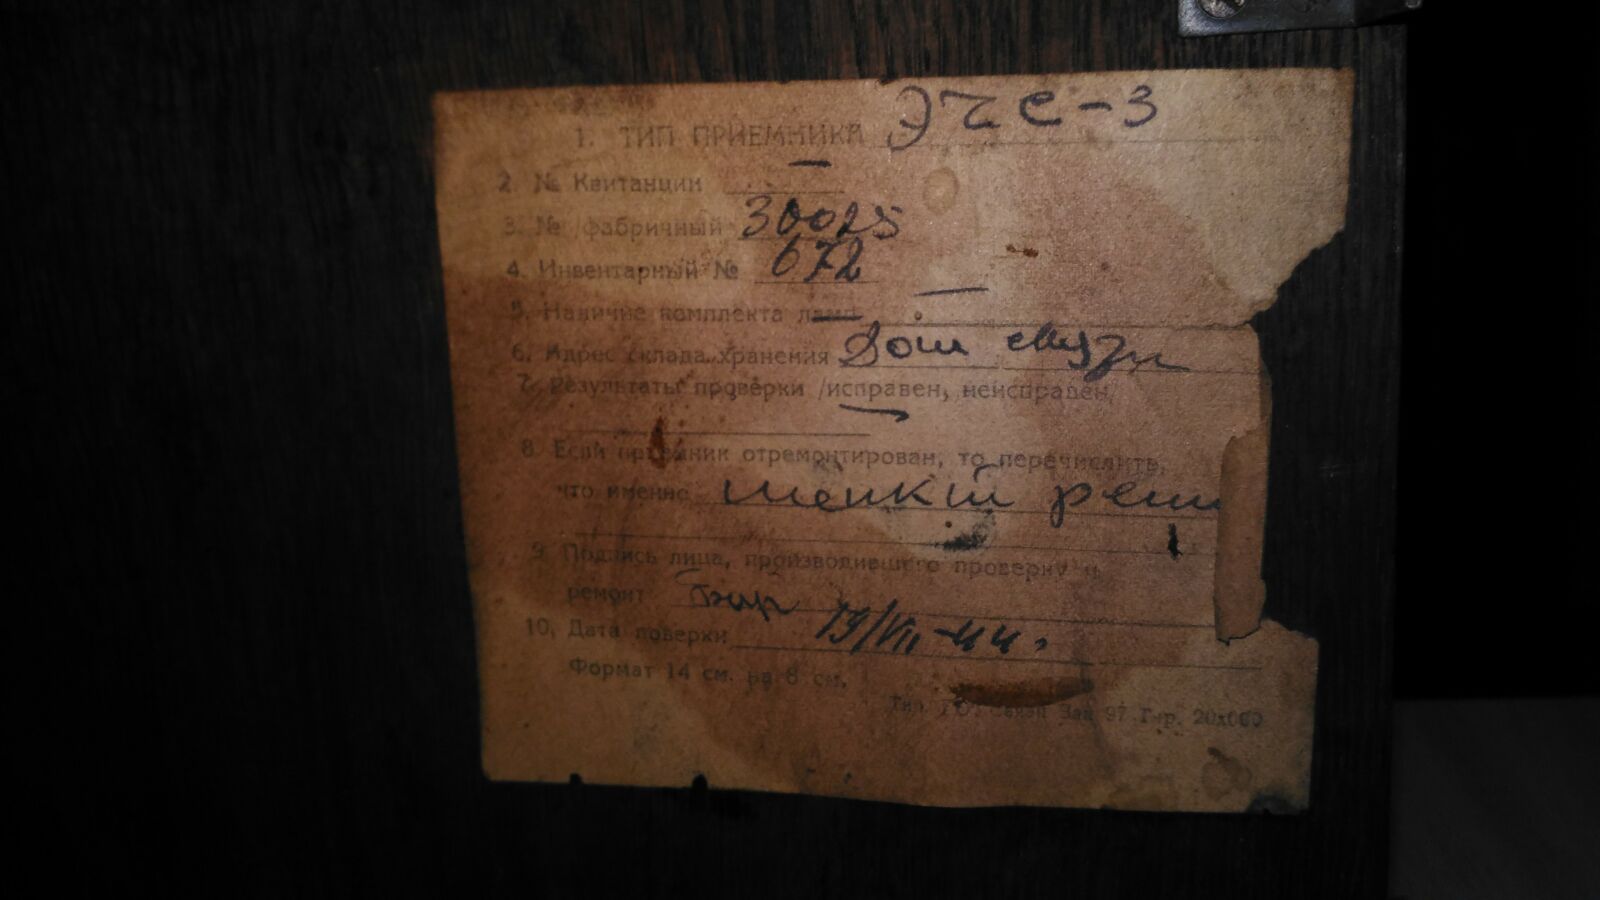 1. ТИП ПРИЕМНИКА ЭЧС-3
2. № Квитанции —
3. № фабричный 30025
4. Инвентарный № 672
5. Наличие комплекта ламп —
6. Адрес склада хранения Дом
7. Результаты проверки /исправен, неисправен/
8. Если приемник отремонтирован, то перечислить,
что именно мелкий
9. Подпись лица, производившего проверку и
ремонт
10. Дата поверки 19/VII-44.
Формат 14 см. на 8 см.
Тип. Связи Зак 97 Тир. 20х000